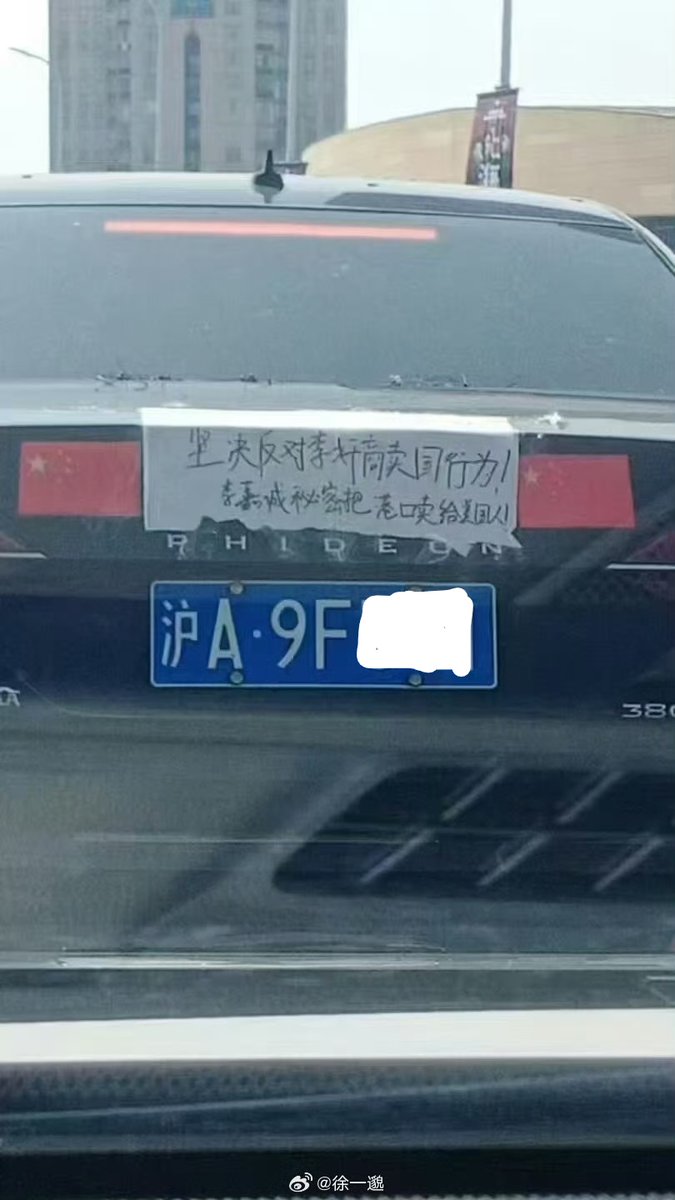 坚决反对李奸商卖国行为!
李嘉诚秘密把港口卖给美国人!
RHIDEON
沪A·9F
380
@徐一邈